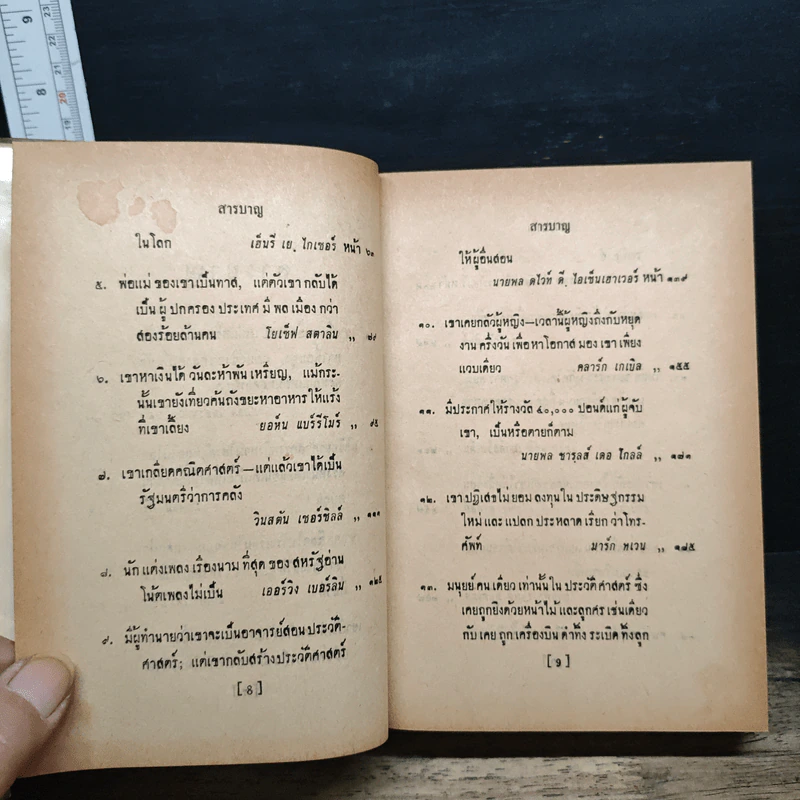 สารบาญ
ในโลก เฮ็นรี เย. ไกเซอร์ หน้า ๖๓
๕. พ่อแม่ ของเขาเป็นทาส, แต่ตัวเขา กลับได้
เป็น ผู้ ปกครอง ประเทศ มี พล เมือง กว่า
สองร้อยล้านคน โยเซ็ฟ สตาลิน ,, ๗๙
๖. เขาหาเงินได้ วันละห้าพัน เหรียญ, แม้กระ-
นั้นเขายังเที่ยวค้นถังขยะหาอาหารให้แร้ง
ที่เขาเลี้ยง ยอห์น แบร์รีโมร์ ,, ๙๕
๗. เขาเกลียดคณิตศาสตร์—แต่แล้วเขาได้เป็น
รัฐมนตรีว่าการคลัง
วินสตัน เชอร์ชิลล์ ,, ๑๑๑
๘. นัก แต่งเพลง เรืองนาม ที่สุด ของ สหรัฐอ่าน
โน้ตเพลงไม่เป็น เออร์วิง เบอร์ลิน ,, ๑๒๕
๙. มีผู้ทำนายว่าเขาจะเป็นอาจารย์สอน ประวัติ-
ศาสตร์; แต่เขากลับสร้างประวัติศาสตร์
[ 8 ]
สารบาญ
ให้ผู้อื่นสอน
นายพล ดไวท์ ดี. ไอเซ็นเฮาเวอร์ หน้า ๑๓๙
๑๐. เขาเคยกลัวผู้หญิง—เวลานี้ผู้หญิงถึงกับหยุด
งาน ครึ่งวัน เพื่อ หาโอกาส มอง เขา เพียง
แวบเดียว คลาร์ก เกเบิล ,, ๑๕๕
๑๑. มีประกาศให้รางวัล ๔๐,๐๐๐ ปอนด์แก่ผู้จับ
เขา, เป็นหรือตายก็ตาม
นายพล ชาร์ลส์ เดอ โกลล์ ,, ๑๗๑
๑๒. เขา ปฏิเสธไม่ ยอม ลงทุน ใน ประดิษฐ์กรรม
ใหม่ และ แปลก ประหลาด เรียก ว่า โทร-
ศัพท์ มาร์ก ทเวน ,, ๑๘๕
๑๓. มนุษย์ คน เดียว เท่านั้น ใน ประวัติ ศาสตร์ ซึ่ง
เคยถูกยิงด้วยหน้าไม้ และลูกศร เช่นเดียว
กับ เคย ถูก เครื่องบิน ดำทิ้ง ระเบิด ทิ้งลูก
[ 9 ]